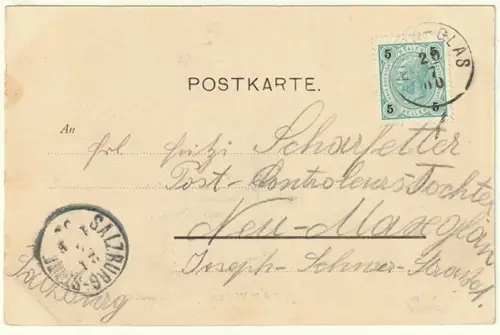 -GLAS
20
7
00
5 5
5 5
POSTKARTE.
An
Frl Fritzi Scharfetter
Post-Controleurs Tochter
Neu-Maxglan
Joseph-Schwer-Strasse
Salzburg
SALZBURG-STADT